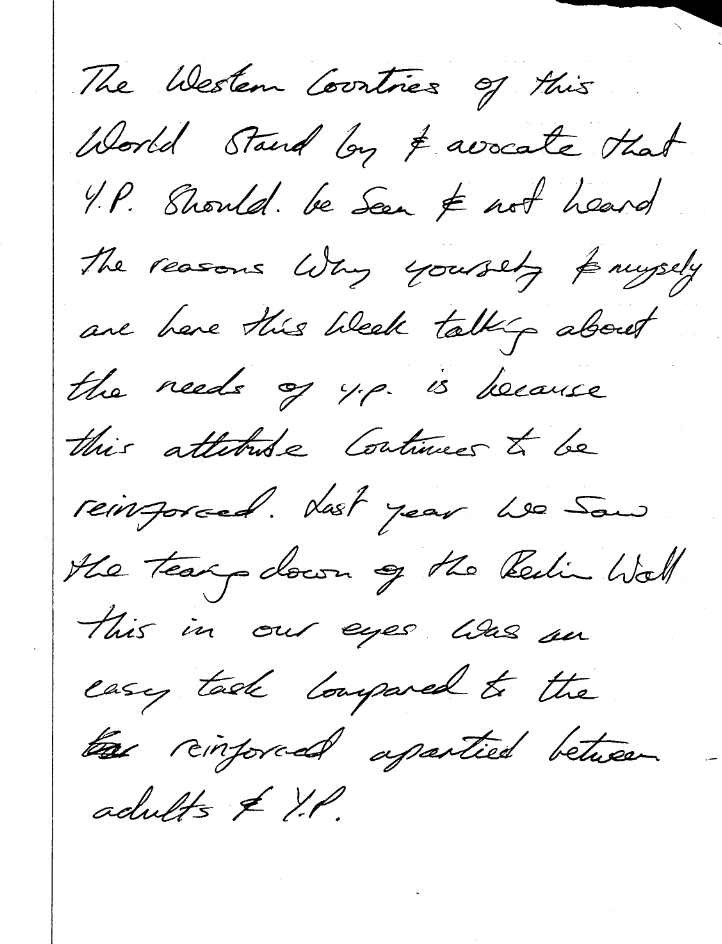 The Western Countries of this
World Stand by & avocate that
Y.P. Should. be Seen & not heard
the reasons Why yourself & myself
are here this Week talking about
the needs of y.p. is because
this attitude Continues to be
reinforced. Last year we Saw
the tearing down of the Berlin Wall
this in our eyes Was an
easy task Compared to the
reinforced apartied between
adults & Y.P.